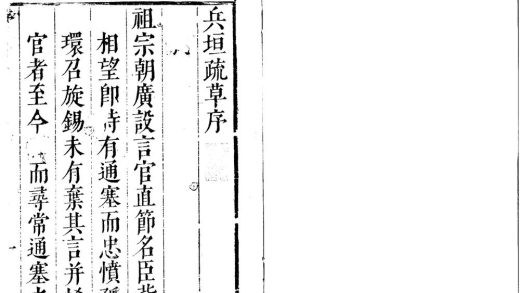 兵垣疏草序
祖宗朝廣設言官直節名臣背
相望卽時有通塞而忠憤
環召旋錫未有棄其言并
官者至今而尋常通塞